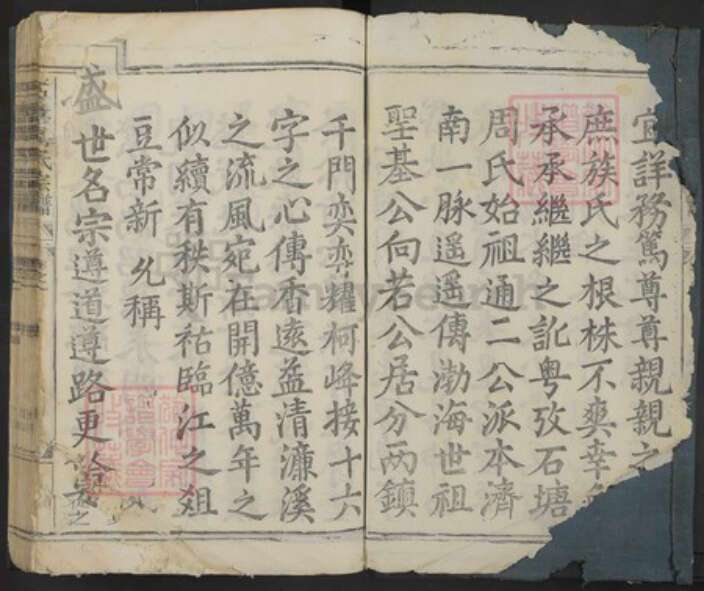 宜詳務篤尊尊親親之
庶族氏之根株不爽幸
承承繼繼之訛粤攷石塘
周氏始祖通二公派本濟
南一脉遥遥傳渤海世祖
聖基公向若公居分兩鎮
千門奕奕耀柯峰接十六
字之心傳香遠益清濂溪
之流風宛在開億萬年之
似續有秩斯祜臨江之俎
豆常新允稱
盛世名宗遵道遵路更